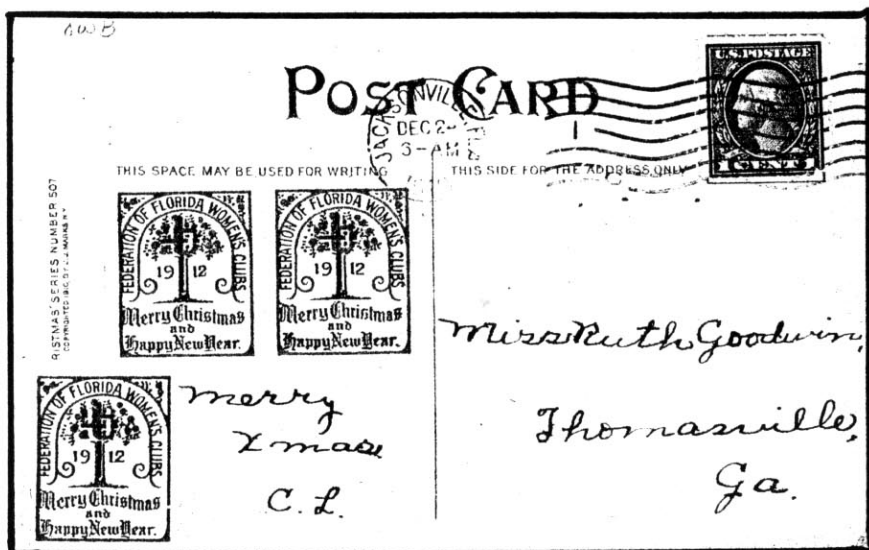 AWB
POST CARD
U.S. POSTAGE
CENT
JACKSONVILLE
DEC 2
3-AM
1
THIS SPACE MAY BE USED FOR WRITING
THIS SIDE FOR THE ADDRESS ONLY
RISTMAS SERIES NUMBER 507
FEDERATION OF FLORIDA WOMEN'S CLUBS
19 12
Merry Christmas
and
Happy New Year.
FEDERATION OF FLORIDA WOMEN'S CLUBS
19 12
Merry Christmas
and
Happy New Year.
FEDERATION OF FLORIDA WOMEN'S CLUBS
19 12
Merry Christmas
and
Happy New Year.
Merry
Xmas
C. L.
Miss Ruth Goodwin,
Thomasville,
Ga.